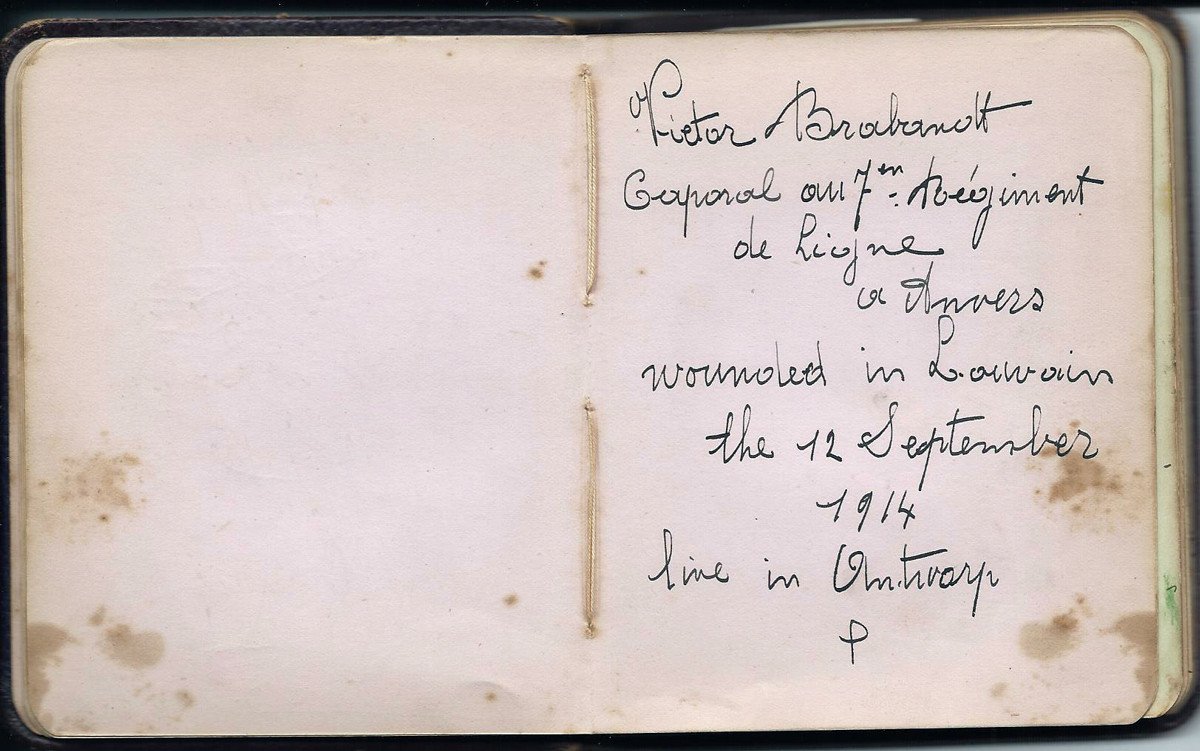 Victor Brabandt
Caporal au 7en. Régiment
de Ligne
a Anvers
wounded in Louvain
the 12 September
1914
live in Antwarp